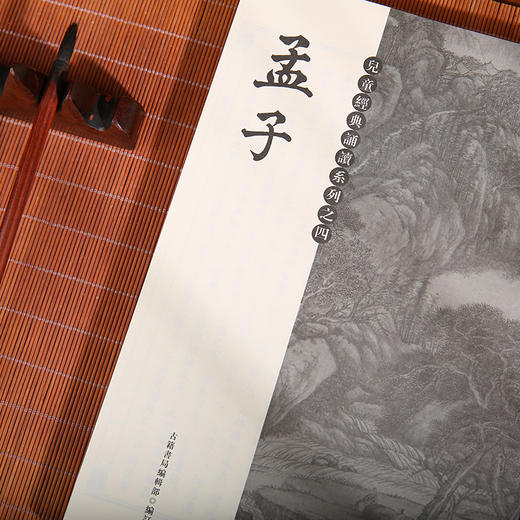 孟子
兒童經典誦讀系列之四
古籍書局編輯部◎編